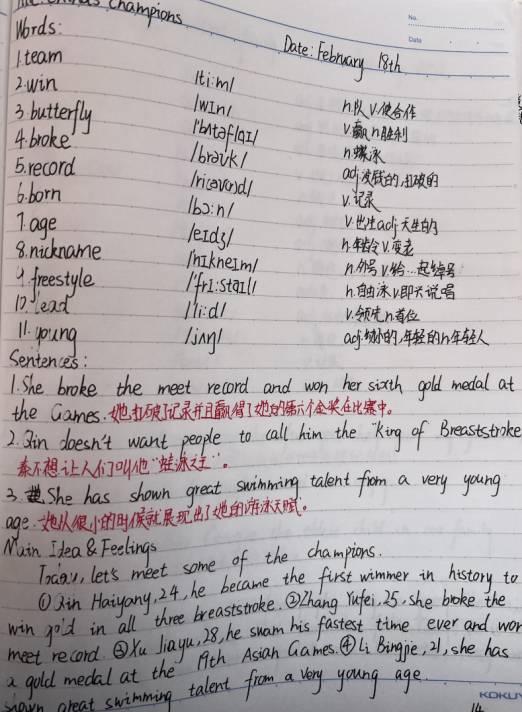 champions
No.
Words:
Date: February 18th
Date
1.team /ti:m/ n.队 v.使合作
2.win /wɪn/ v.赢 n.胜利
3.butterfly /'bʌtəflaɪ/ n.蝶泳
4.broke /brəʊk/ adj.没钱的,打破的
5.record v.记录
6.born /bɔ:n/ v.出生 adj.天生的
7.age /eɪdʒ/ n.年龄 v.变老
8.nickname /'nɪkneɪm/ n.外号 v.给…起绰号
9.freestyle /'fri:staɪl/ n.自由泳 v.即兴说唱
10.lead /'li:d/ v.领先 n.首位
11.young /jʌŋ/ adj.幼小的,年轻的 n.年轻人
Sentences:
1.She broke the meet record and won her sixth gold medal at
the Games.她打破了记录并且赢得了她的第六个金奖在比赛中。
2.Qin doesn't want people to call him the "King of Breaststroke
秦不想让人们叫他"蛙泳之王"。
3.She has shown great swimming talent from a very young
age.她从很小的时候就展现出了她的游泳天赋。
Main Idea & Feelings
Today, let's meet some of the champions.
①Qin Haiyang,24, he became the first wimmer in history to
win gold in all three breaststroke.②Zhang Yufei,25, she broke the
meet record.③Xu Jiayu,28, he swam his fastest time ever and won
a gold medal at the 19th Asian Games.④Li Bingjie,21, she has
shown great swimming talent from a very young age.
KOKUY
14